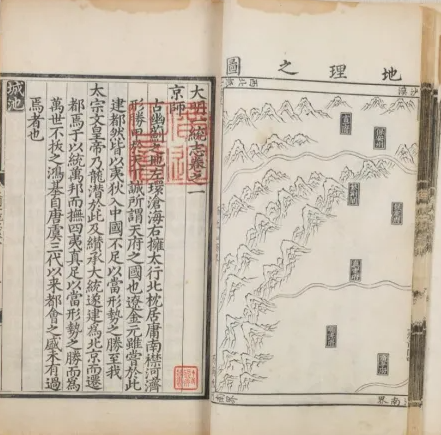 地理之圖
沙漠
南界
大明一統志卷之一
京師
古幽薊之地左環滄海右擁太行北枕居庸南襟河濟
形勝甲於天下誠所謂天府之國也遼金元雖嘗於此
建都然皆以夷狄入中國不足以當形勢之勝至我
太宗文皇帝乃龍潛於此及纘承大統遂建為北京而遷
都焉于以統萬邦而撫四夷真足以當形勢之勝而為
萬世不拔之鴻基自唐虞三代以來都會之盛未有過
焉者也
城池